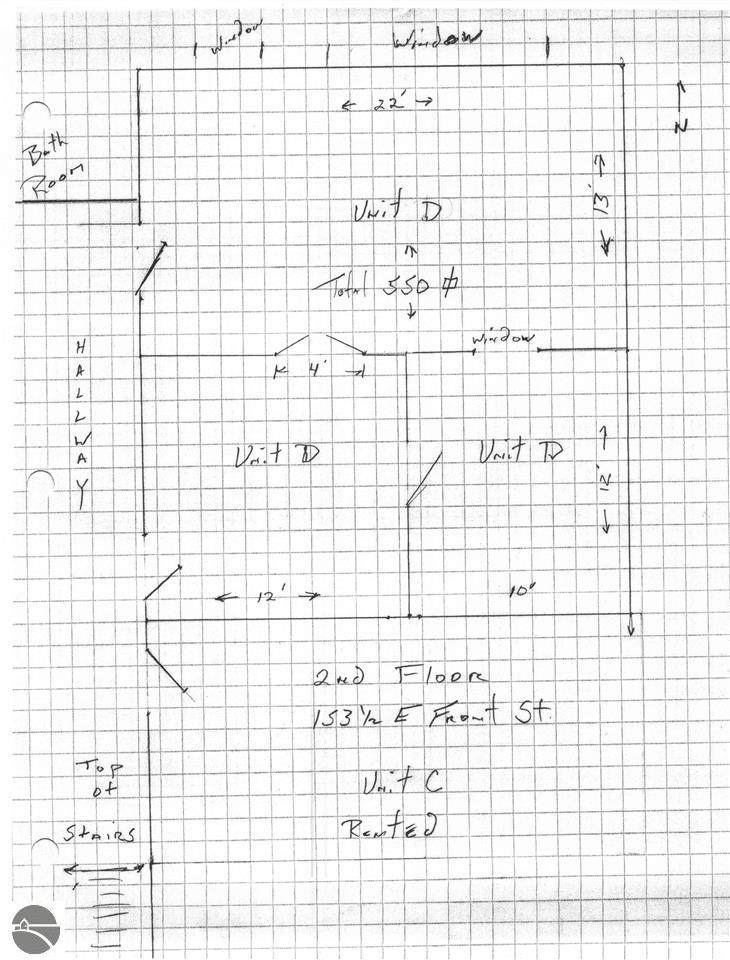 Window
Window
← 22' →
N
Bath
Room
← 13' →
Unit D
Total 550 ⏍
Window
← 4' →
HALLWAY
Unit D
Unit D
← 12' →
← 12' →
10'
2nd Floor
153 1/2 E Front St.
Unit C
Rented
Top
of
Stairs